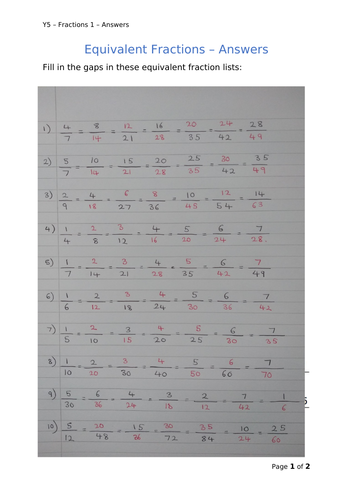 Y5 – Fractions 1 – Answers
Equivalent Fractions – Answers
Fill in the gaps in these equivalent fraction lists:
1) 4/7 = 8/14 = 12/21 = 16/28 = 20/35 = 24/42 = 28/49
2) 5/7 = 10/14 = 15/21 = 20/28 = 25/35 = 30/42 = 35/49
3) 2/9 = 4/18 = 6/27 = 8/36 = 10/45 = 12/54 = 14/63
4) 1/4 = 2/8 = 3/12 = 4/16 = 5/20 = 6/24 = 7/28
5) 1/7 = 2/14 = 3/21 = 4/28 = 5/35 = 6/42 = 7/49
6) 1/6 = 2/12 = 3/18 = 4/24 = 5/30 = 6/36 = 7/42
7) 1/5 = 2/10 = 3/15 = 4/20 = 5/25 = 6/30 = 7/35
8) 1/10 = 2/20 = 3/30 = 4/40 = 5/50 = 6/60 = 7/70
9) 5/30 = 6/36 = 4/24 = 3/18 = 2/12 = 7/42 = 1/6
10) 5/12 = 20/48 = 15/36 = 30/72 = 35/84 = 10/24 = 25/60
Page 1 of 2